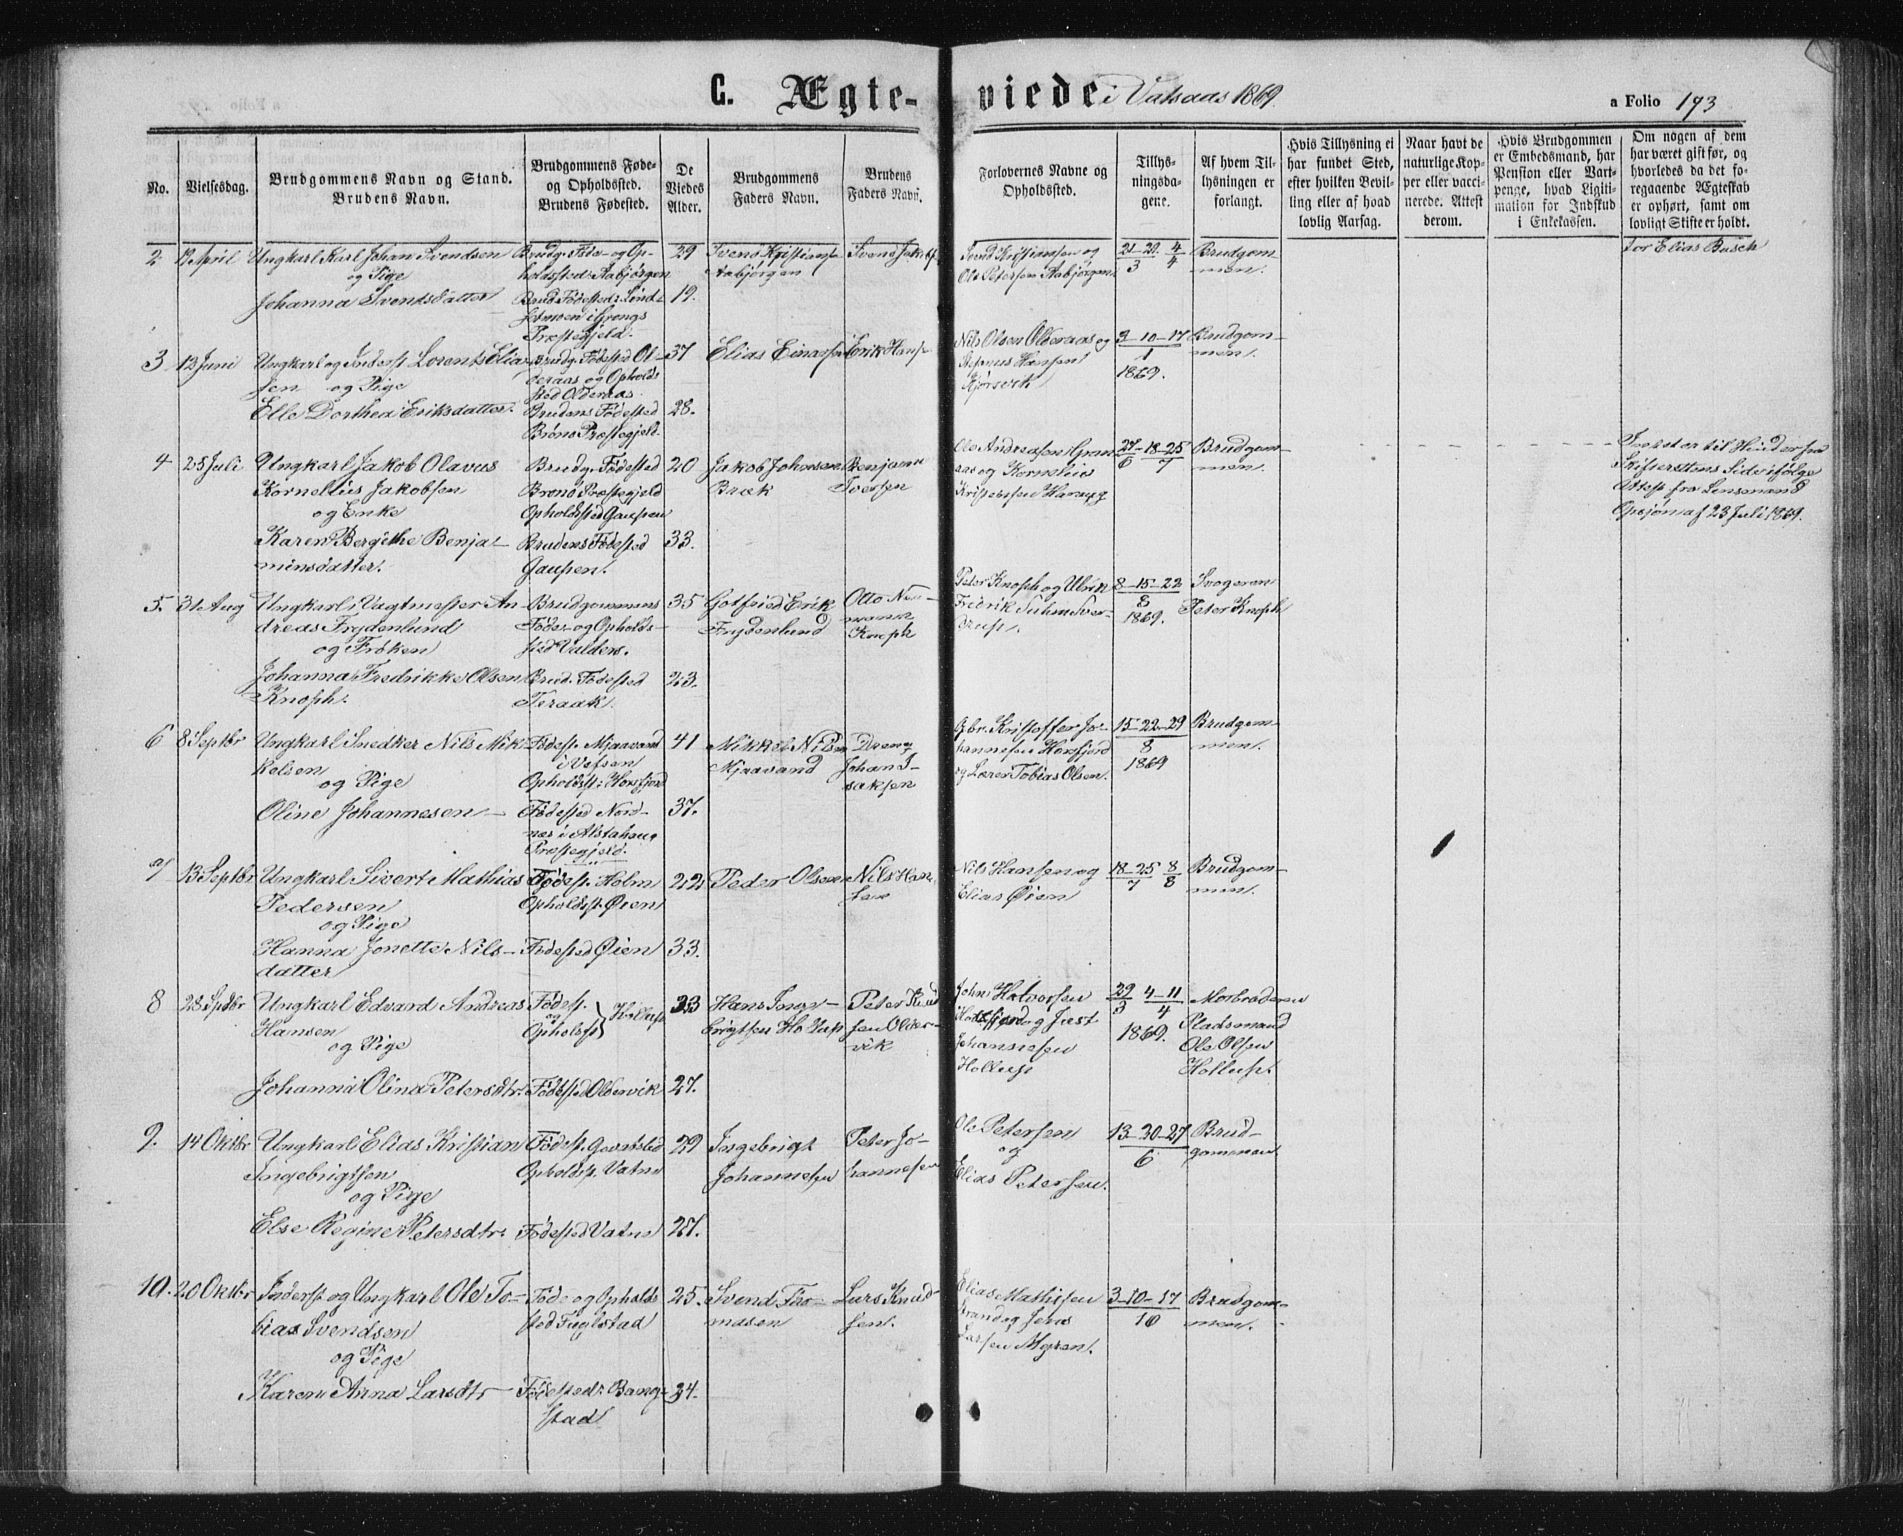 C. Ægteviede i Vatsaas 1869.
a Folio 193
No.
Vielsesdag.
Brudgommens Navn og Stand.
Brudens Navn.
Brudgommens Føde-
og Opholdssted.
Brudens Fødested.
De
Viedes
Alder.
Brudgommens
Faders Navn.
Brudens
Faders Navn.
Forlovernes Navne og
Opholdssted.
Tillys-
ningsda-
gene.
Af hvem Til-
lysningen er
forlangt.
Hvis Tillysning ei
har fundet Sted,
efter hvilken Bevil-
ling eller af hvad
lovlig Aarsag.
Naar havt de
naturlige Kop-
per eller vacci-
nerede. Attest
derom.
Hvis Brudgommen
er Embedsmand, har
Pension eller Vart-
penge, hvad Ligiti-
mation for Indskud
i Enkekassen.
Om nogen af dem
har været gift før, og
hvorledes da det fo-
regaaende Ægteskab
er ophørt, samt om
lovligt Skifte er holdt.
2 12 April Ungkarl Karl Johan Svendsen
og Pige
Johanna Svendsdatter
Brudg: Føde- og Op-
holdssted: Aabjørgen
Brud. Fødested:
i Grongs
Præstegjeld.
29
19.
Svend Kristiansen
Aabjørgen
Svend Jakobs
Svend Kristiansen og
Ole Petersen Aabjørgen
21-29 4
3 4
Brudgom
men.
for Elias Busch
3 12 Juni Ungkarl og Inderst Lorents Elia-
sen og Pige
Elle Dorthea Eriksdatter.
Brudg: Fødested Ol-
deraas og Opholds
sted Olderaas
Brudens Fødested
Brønø Præstegjeld.
37
28.
Elias Einarsen
Erik Hans
Nils Olsen Olderaas og
Hansen
Kjørsvik
3-10-17
1
1869.
Brudgom-
men.
4 25 Juli Ungkarl Jakob Olavus
Kornelius Jakobsen
og Enke
Karen Bergithe Benja-
minsdatter.
Brudg. Fødested
Brønø Præstegjeld
Opholdsted Gaupen
Brudens Fødested
Gaupen.
20
33.
Jakob Johnsen
Bræk
Benjamin
Iversen
Ole Andreasen Gran-
aas og Kornelius
Kristensen
27-18-25
6 7
Brudgom-
men.
Intet er til Hinder fra
Skifterettens Side ifølge
Attest fra Lensmand
Opsjøn af 23 Juli 1869.
5. 31 Aug Ungkarl i Vagtmester An-
dreas Frydenlund
og Frøken
Johanna Fredrikke Olsen
Knoph.
Brudgommens
Føde- og Opholds-
sted Valders.
Brud. Fødested
Teraak
35
23.
Gotfried Erik
Frydenlund
Otto Nor-
mann
Knoph
Peter Knoph og Ulrik
Fredrik Suhm Sver-
drup.
8-15-22
8
1869.
Svogeren
Peter Knoph
6 8 Septbr Ungkarl Snedker Nils Mik-
kelsen
og Pige
Oline Johannesen
Fødest. Mjaavand
i Vefsen
Opholdst: Horsfjord
Fødested Nord-
næs i Alstahaug
Præstegjeld.
41
37.
Mikkel Nilsen
Mjaavand
Dreng
Johan I-
saksen
Gbr. Kristoffer Jo-
hannesen Horsfjord
og Lærer Tobias Olsen.
15-22-29
8
1869
Brudgom-
men.
7 13 Septbr Ungkarl Sivert Mathias
Pedersen
og Pige
Hanna Jonette Nils-
datter
Fødest. Holm
Opholdst. Øien
Fødested Øien
22
33.
Peder Olsen
Nils Han
sen
Nils Hansen og
Elias Øien
18-25 8
7 8
Brudgom-
men.
8 28 Septbr Ungkarl Edvard Andreas
Hansen
og Pige
Johanna Olina Petersdtr.
Fødest.
og
Opholdst
Hollup
Fødested Oldervik
23
27.
Hans Inge-
brigtsen Hollup
Peter Knud
sen Older-
vik
John Halvorsen
Horsfjord og Just
Johannesen
Hollup
29 4-11
3 4
1869.
Morbroderen
Pladsmand
Ole Olsen
Hollup.
9. 14 Oktbr Ungkarl Elias Kristian
Ingebrigtsen
og Pige
Else Regine Petersdtr.
Fødest.
Opholdst. Vatne
Fødested Vatne
29
27.
Ingebrigt
Johannesen
Peter Jo-
hannesen
Ole Petersen
og
Elias Petersen.
13-20-27
6
Brud-
gommen
10. 20 Oktbr Inderst og Ungkarl Ole To-
bias Svendsen
og Pige
Karen Anna Larsdtr
Føde og Opholds
sted Fuglstad
Fødested: Bang-
stad
25.
24.
Svend Tho-
massen
Lars Knud-
sen.
Elias Mathisen
Strand og Jens
Larsen Myren.
3-10-17
10
Brudgom-
men.